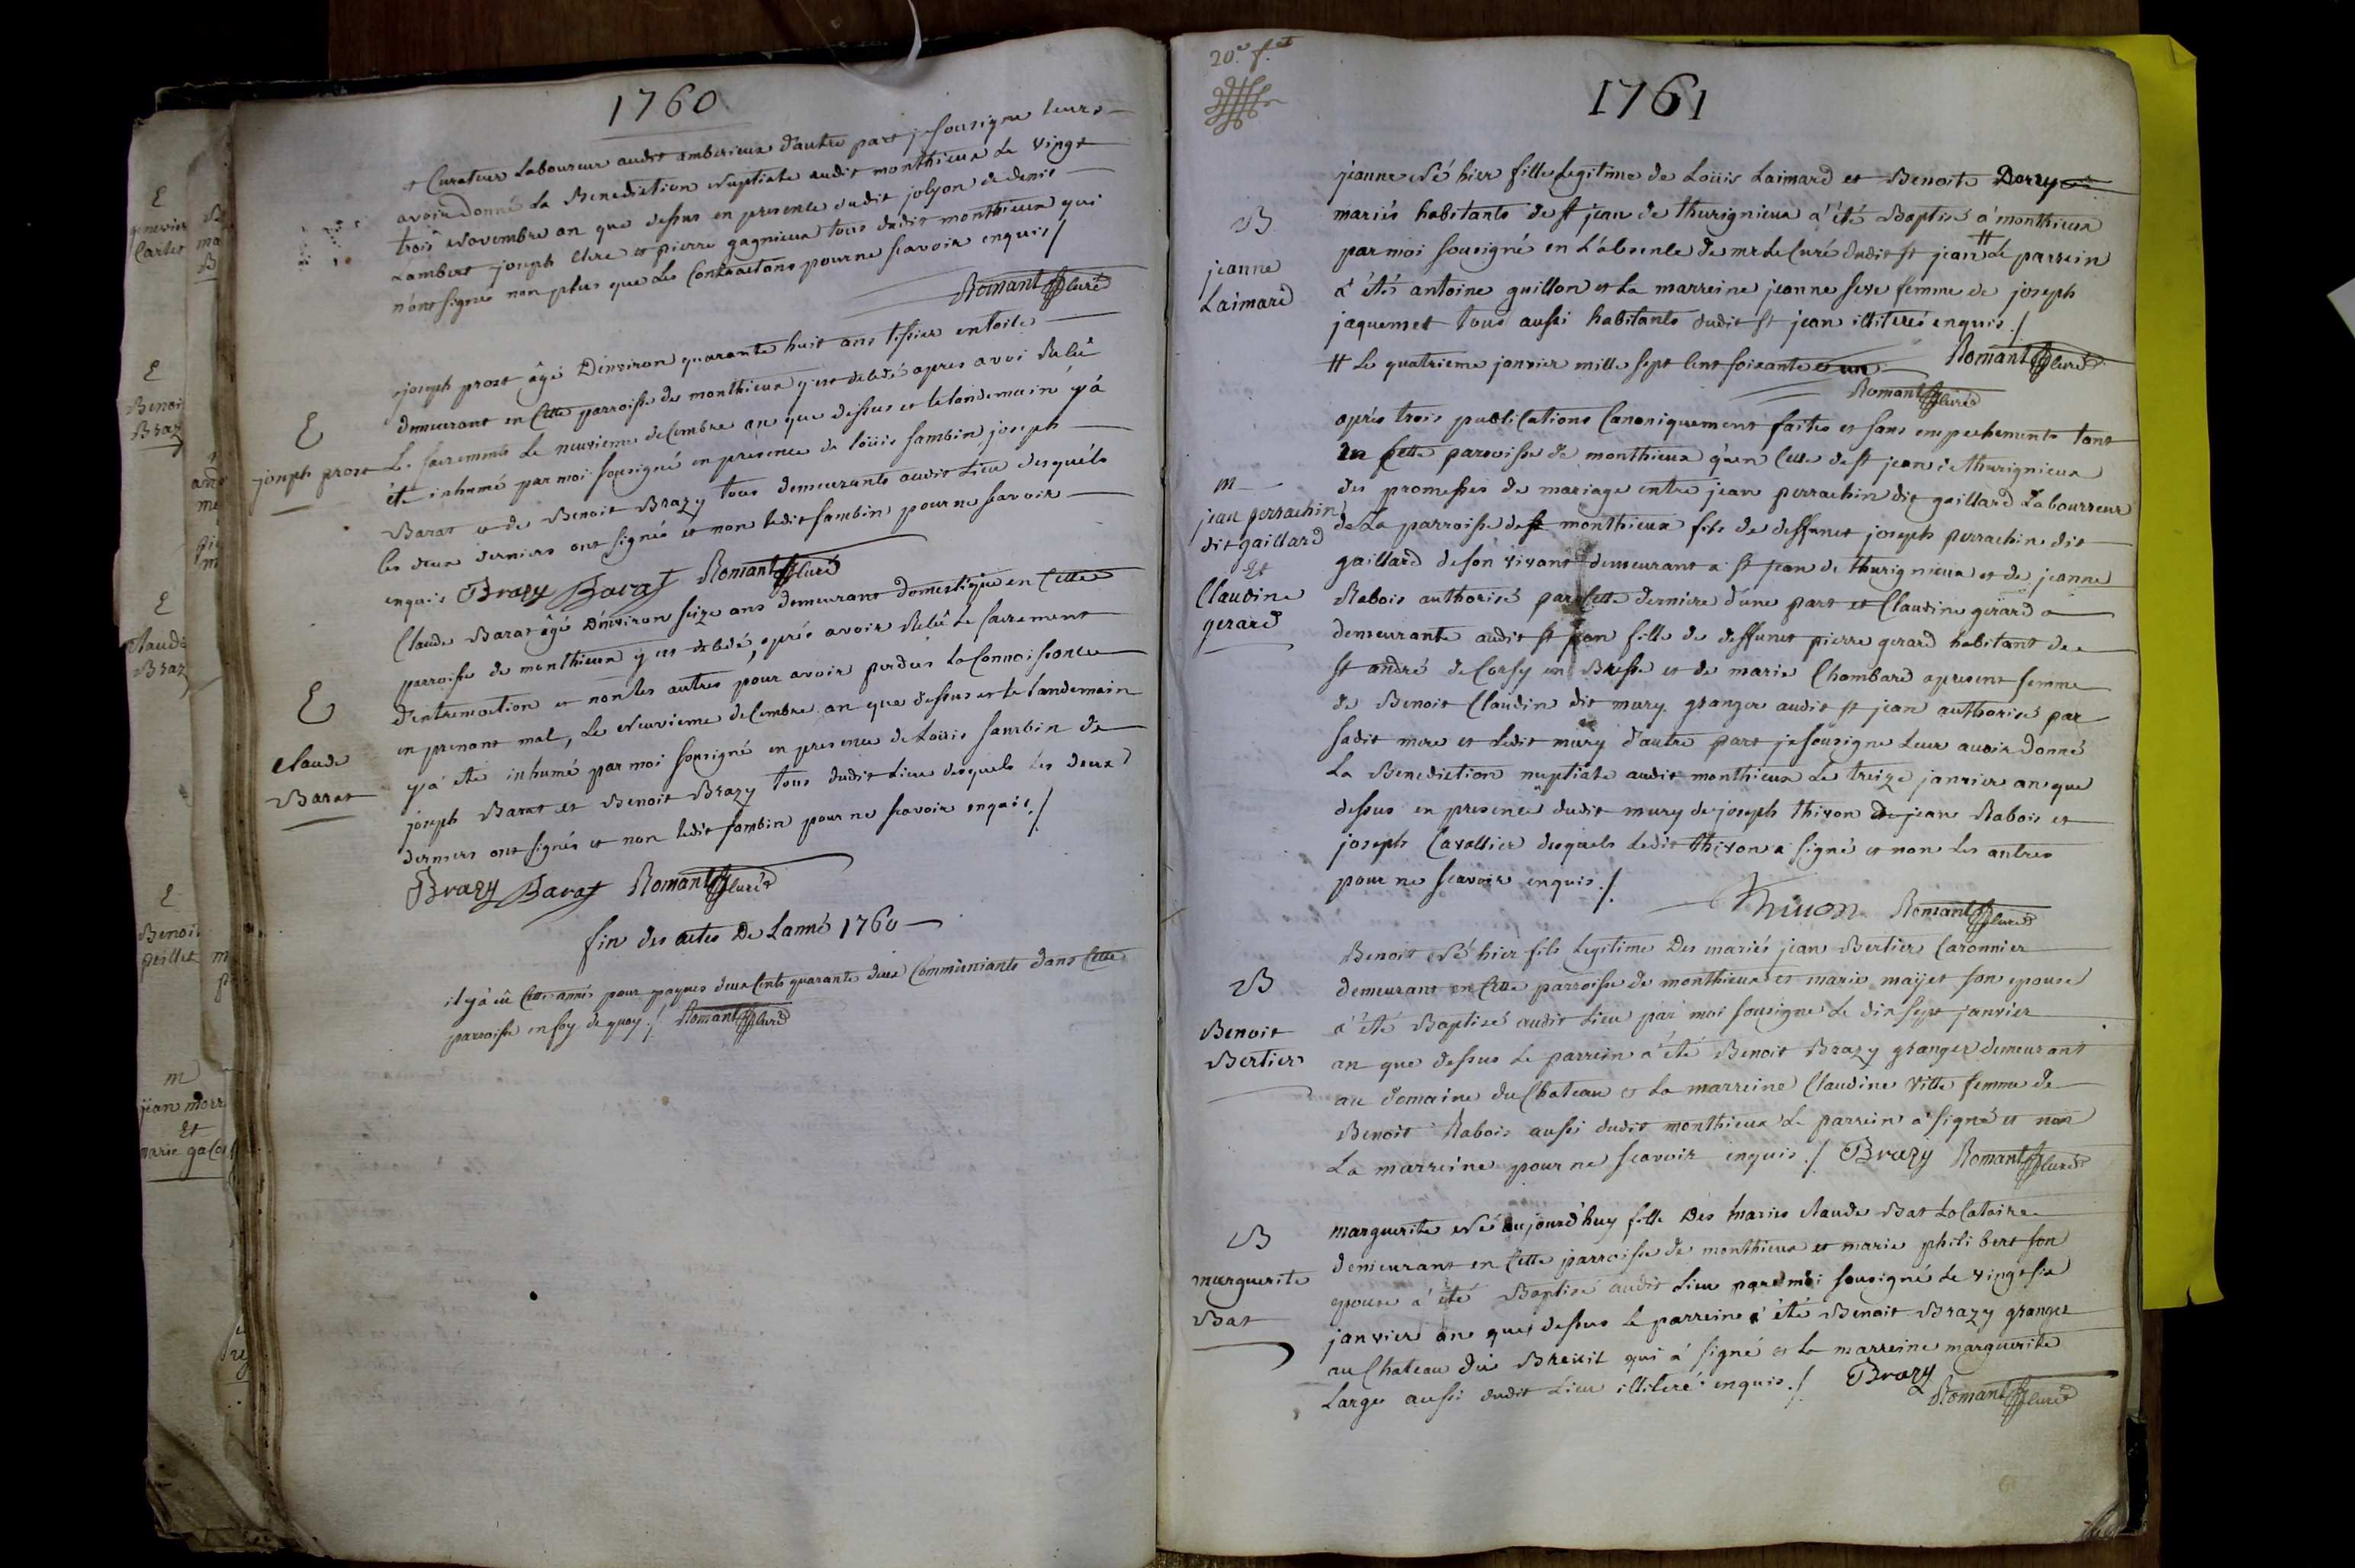 1760
et Curateur Laboureur audit amberieux d'autre part je sousigne leurs
avoir donné La Benediction Nuptiale audit monthieux Le vingt
trois Novembre an que dessus en presence dudit jolyon de denis
Lambert joseph Clere et pierre gagnieux tous dudit monthieux qui
n'ont signés non plus que Les Contractans pour ne scavoir enquis /
Romant Curé
E
joseph prost
joseph prost âgé D'environ quarante huit ans tissier en toile
demeurant en Cette parroisse de monthieux y est decedé apres avoi Relû
Les sacrements Le neuvieme decembre an que dessus et le landemain y'à
été inhumé par moi sousigné en presence de loüis sambin joseph
Barat et de Benoit Brazy tous demeurants audit Lieu desquels
les deux derniers ont signés et non ledit sambin pour ne scavoir
enquis Brazy Barat Romant Curé
E
Claude
Barat
Claude Barat âgé D'environ seize ans demeurant domestique en Cette
parroisse de monthieux y est decedé, après avoir Relû Le sacrement
d'extremoction et non les autres pour avoir perdües La Connoissance
en prenant mal, Le Neuvieme decembre an que dessus et le landemain
y'à été inhumé par moi sousigné en presence de Loüis sambin de
joseph Barat et Benoit Brazy tous dudit Lieu desquels Les deux
derniers ont signés et non ledit sambin pour ne scavoir enquis /
Brazy Barat Romant Curé
fin des actes De Lanné 1760
il y à eû Cette année pour paques deux Cents quarante deux Communiants dans Cette
parroisse en foy de quoy / Romant Curé
20e f.et
1761
B
jeanne
Laimard
jeanne Né hier fille Legitime de Loüis Laimard et Benoite Dorry
mariés habitants de st jean de thurignieux a'été Baptisé a' monthieux
par moi sousigné en L'absence de mr Le Curé dudit st jean # Le parrein
a' étés antoine guillon et La marreine jeanne seve femme de joseph
jaquemet tous aussi habitants dudit st jean illiterés enquis /
# Le quatrieme janvier mille sept Cent soixante et un Romant Curé
Romant Curé
m
jean perrachin
dit gaillard
Et
Claudine
gerard
après trois publications Canoniquement faites et sans empechements tant
en Cette parroisse de monthieux qu'en Celle de st jean de thurignieux
des promesses de mariage entre jean perrachin dit gaillard Labourreur
de La parroisse de st monthieux fils de deffunct joseph perrachin dit
gaillard de son vivant demeurant a st jean de thurignieux et de jeanne
Rabois authorisé par Cette derniere d'une part et Claudine gerard
demeurante audit st jean fille de deffunct pierre gerard habitant de
st andré de Corsy en Bresse et de marie Chambard apresent femme
de Benoit Claudin dit mury granger audit st jean authorisé par
sadit mere et Ledit mury d'autre part je sousigne Leur avoir donné
La Benediction nuptiale audit monthieux Le treize janvier an que
dessus en presence dudit mury de joseph thivon de jean Rabois et
joseph Cavallier desquels Ledit thivon a signé et non Les autres
pour ne scavoir enquis /
Thivon Romant Curé
B
Benoit
Bertier
Benoit Né hier fils Legitime Des mariés jean Bertier Caronnier
demeurant en Cette parroisse de monthieux et marie maijet son epouse
a'été Baptisé audit Lieu par moi sousigne Le dix sept janvier
an que dessus Le parrein a'été Benoit Brazy granger demeurant
au domaine du Chateau et La marreine Claudine Ville femme de
Benoit Rabois aussi dudit monthieux Le parrein a' signé et non
La marreine pour ne scavoir enquis / Brazy Romant Curé
B
marguerite
Bat
marguerite Né aujourd'huy fille Des mariés Claude Bat Locataire
demeurant en Cette parroisse de monthieux et marie philibert son
epouse a' été Baptisé audit Lieu par moi sousigné Le vingt six
janvier an que dessus Le parrein a' été Benoit Brazy granger
au Chateau du Breüil qui a' signé et La marreine marguerite
Large aussi dudit Lieu illiteré enquis / Brazy
Romant Curé